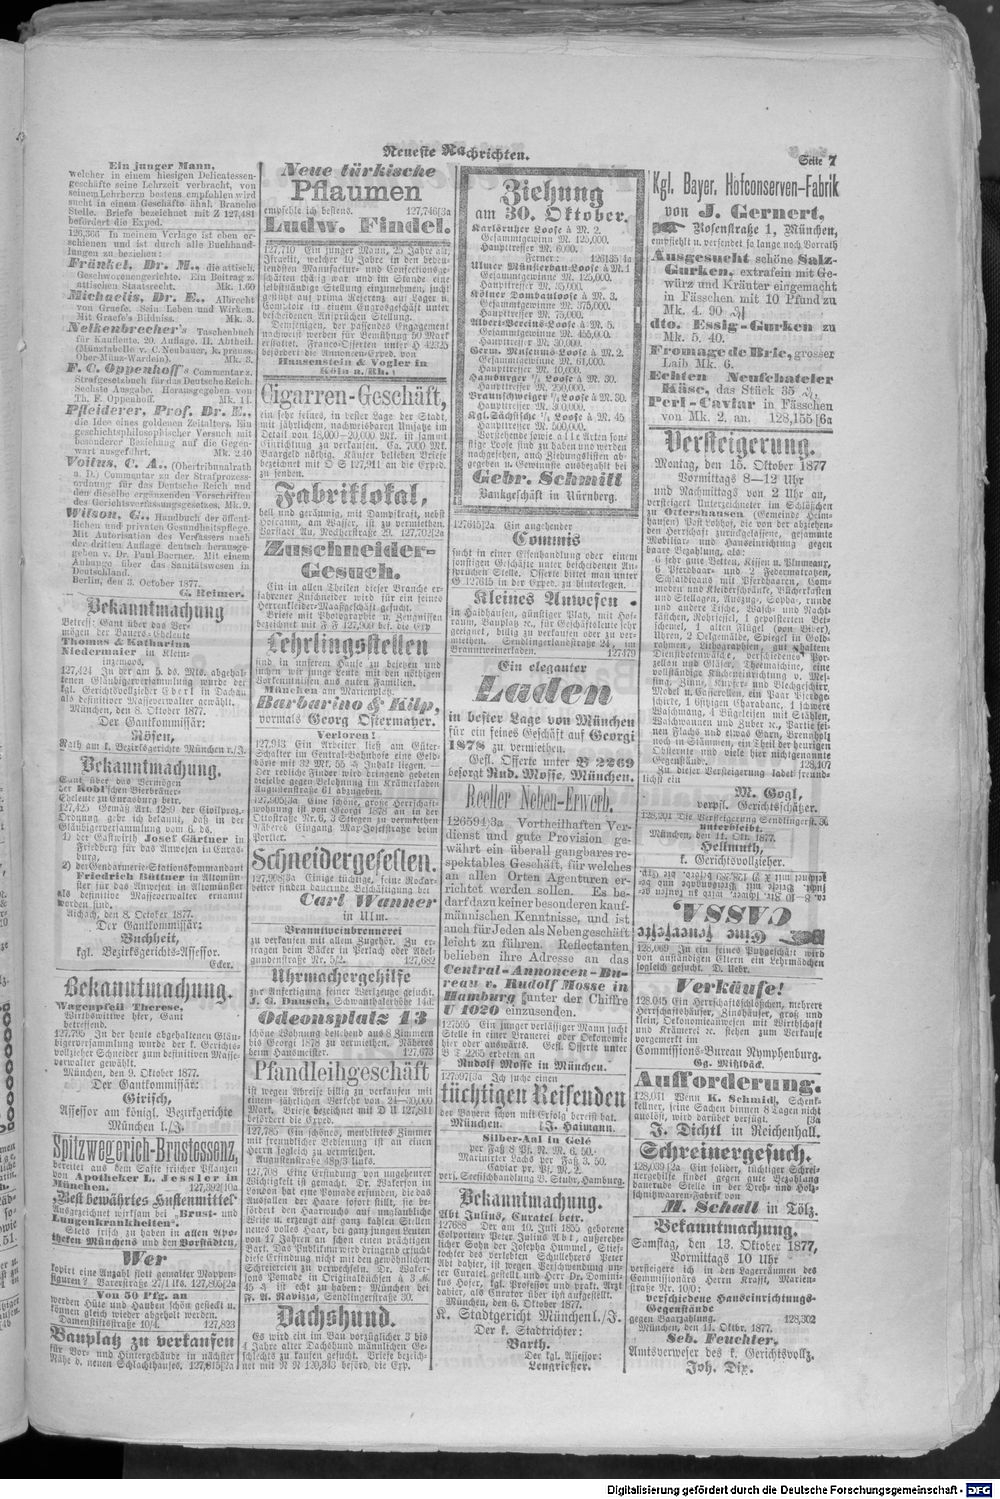 Neueste Nachrichten.
Seite 7
Ein junger Mann,
welcher in einem hiesigen Delicatessen-
geschäfte seine Lehrzeit verbracht, von
seinem Lehrherrn bestens empfohlen wird
sucht in einem Geschäfte ähnl. Branche
Stelle. Briefe bezeichnet mit Z 127,481
befördert die Exped.
126,366 In meinem Verlage ist eben er-
schienen und ist durch alle Buchhand-
lungen zu beziehen:
Fränkel, Dr. M., die attisch.
Geschworenengerichte. Ein Beitrag z.
attischen Staatsrecht. Mk. 1.60
Michaelis, Dr. E., Albrecht
von Graefe. Sein Leben und Wirken.
Mit Graefe's Bildniss. Mk. 3.
Nelkenbrecher's Taschenbuch
für Kaufleute. 20. Auflage. II. Abtheil.
(Münztabelle v. C. Neubauer, k. preuss.
Ober-Münz-Wardein).
F. C. Oppenhoff's Commentar z.
Strafgesetzbuch für das Deutsche Reich.
Sechste Ausgabe. Herausgegeben von
Th. F. Oppenhoff. Mk. 11.
Pfleiderer, Prof. Dr. E.,
die Idee eines goldenen Zeitalters. Ein
geschichtsphilosophischer Versuch mit
besonderer Beziehung auf die Gegen-
wart ausgeführt. Mk. 2.40
Voitus, C. A., (Obertribunalrath
a. D.) Commentar zu der Strafprozess-
ordnung für das Deutsche Reich und
den dieselbe ergänzenden Vorschriften
des Gerichtsverfassungsgesetzes. Mk. 9.
Wilson, G., Handbuch der öffent-
lichen und privaten Gesundheitspflege.
Mit Autorisation des Verfassers nach
der dritten Auflage deutsch herausge-
geben v. Dr. Paul Boerner. Mit einem
Anhange über das Sanitätswesen in
Deutschland.
Berlin, den 3. October 1877.
G. Reimer.
Bekanntmachung
Betreff: Gant über das Ver-
mögen der Bauers-Eheleute
Thomas & Katharina
Niedermaier in Klein-
inzemoos.
127,424 In der am 5. ds. Mts. abgehal-
tenen Gläubigerversammlung wurde der
kgl. Gerichtsvollzieher Eberl in Dachau
als definitiver Masseverwalter gewählt.
München, den 8. Oktober 1877.
Der Gantkommissär:
Rösen,
Rath am k. Bezirksgerichte München r./J.
Bekanntmachung.
Gant über das Vermögen
der Kobl'schen Bierbräuer-
Eheleute zu Eurasburg betr.
127,425 Gemäß Art. 1289 der Civilproz.-
Ordnung gebe ich bekannt, daß in der
Gläubigerversammlung vom 6. ds.
1) der Gastwirth Josef Gärtner in
Friedberg für das Anwesen in Euras-
burg,
2) der Gendarmerie-Stationskommandant
Friedrich Büttner in Altomün-
ster für das Anwesen in Altomünster
als definitive Masseverwalter ernannt
worden sind.
Aichach, den 8. Oktober 1877.
Der Gantkommissär:
Buchheit,
kgl. Bezirksgerichts-Assessor.
Ecker.
Bekanntmachung.
Wagenpfeil Therese,
Wirthswittwe hier, Gant
betreffend.
127,795 In der heute abgehaltenen Gläu-
bigerversammlung wurde der k. Gerichts-
vollzieher Schneider zum definitiven Masse-
verwalter gewählt.
München, den 9. Oktober 1877.
Der Gantkommissär:
Girisch,
Assessor am königl. Bezirksgerichte
München l./J.
Spitzwegerich-Brustessenz,
bereitet aus dem Safte frischer Pflanzen
von Apotheker L. Jessler in
München. 127,392[10a
„Best bewährtes Hustenmittel"
Ausgezeichnet wirksam bei „Brust- und
Lungenkrankheiten".
Stets frisch zu haben in allen Apo-
theken Münchens und den Vorstädten.
Wer
kopirt eine Anzahl flott gemalter Mappen-
figuren? Barerstraße 27/1 lks. 127,805[2a
Von 50 Pfg. an
werden Hüte und Hauben schön gesteckt u.
können gleich wieder abgeholt werden.
Damenstiftstraße 10/4. 127,823
Bauplatz zu verkaufen
für Vor- und Hintergebäude in nächster
Nähe d. neuen Schlachthauses. 127,615[2a
Neue türkische
Pflaumen
empfehle ich bestens. 127,746[3a
Ludw. Findel.
127,710 Ein junger Mann, 25 Jahre alt,
Israelit, welcher 10 Jahre in den bedeu-
tendsten Manufactur- und Confectionsge-
schäften thätig war und im Stande eine
selbstständige Stellung einzunehmen, sucht
gestützt auf prima Referenz auf Lager u.
Comptoir in einem Engrosgeschäft unter
bescheidenen Ansprüchen Stellung.
Demjenigen, der passendes Engagement
nachweist werden für Bemühung 50 Mark
erstattet. Franco-Offerten unter H 42325
befördert die Annoncen-Exped. von
Haasenstein & Vogler in
Köln a./Rh. 1
Cigarren-Geschäft,
ein sehr feines, in bester Lage der Stadt,
mit jährlichem, nachweisbaren Umsatze im
Detail von 18,000—20,000 Mk. ist sammt
Einrichtung zu verkaufen. Ca. 7000 Mk.
Baargeld nöthig. Käufer belieben Briefe
bezeichnet mit O S 127,911 an die Exped.
zu senden.
Fabriklokal,
hell und geräumig, mit Dampfkraft, nebst
Hofraum, am Wasser, ist zu vermiethen.
Vorstadt Au, Nocherstraße 29. 127,702[2a
Zuschneider-
Gesuch.
Ein in allen Theilen dieser Branche er-
fahrener Zuschneider wird für ein feines
Herrenkleider-Maaßgeschäft gesucht.
Briefe mit Photographie u. Zeugnissen
bezeichnet mit F F 127,969 bef. die Exp
Lehrlingsstellen
sind in unserem Hause zu besetzen und
suchen wir junge Leute mit den nöthigen
Vorkenntnissen aus guten Familien.
München am Marienplatz.
Barbarino & Kilp,
vormals Georg Ostermayer.
Verloren!
127,943 Ein Arbeiter ließ am Güter-
Schalter im Central-Bahnhofe eine Geld-
börse mit 32 Mk. 55 ₰ Inhalt liegen.
Der redliche Finder wird dringend gebeten
dieselbe gegen Belohnung im Krämerladen
Augustenstraße 61 abzugeben.
127,905[3a Ein schöne, große Herrschaft-
wohnung ist von Georgi 1878 an in der
Ottostraße Nr. 6, 3 Stiegen zu vermiethen
Näheres Eingang Max-Josefstraße beim
Portier.
Schneidergesellen.
127,908[3a Einige tüchtige, feine Rockar-
beiter finden dauernde Beschäftigung bei
Carl Wanner
in Ulm.
Branntweinbrennerei
zu verkaufen mit allem Zugehör. Zu er-
fragen beim Bäcker in Perlach oder Adel-
gundenstraße Nr. 5/2. 127,682
Uhrmachergehilfe
zur Anfertigung feiner Werkzeuge gesucht.
J. G. Dausch, Schwanthalerhöhe 14d.
Odeonsplatz 13
schöne Wohnung bestehend aus 5 Zimmern
bis Georgi 1878 zu vermiethen. Näheres
beim Hausmeister. 127,673
Pfandleihgeschäft
ist wegen Abreise billig zu verkaufen mit
einem jährlichen Verkehr von 24—30,000
Mark. Briefe bezeichnet mit D U 127,811
befördert die Exped.
127,785 Ein schönes, meublirtes Zimmer
mit freundlicher Bedienung ist an einen
Herrn sogleich zu vermiethen.
Augustenstraße 48p/3 links.
127,708 Eine Erfindung von ungeheurer
Wichtigkeit ist gemacht. Dr. Wakerson in
London hat eine Pomade erfunden, die das
Ausfallen der Haare sofort stillt, sie be-
fördert den Haarwuchs auf unglaubliche
Weise u. erzeugt auf ganz kahlen Stellen
neues volles Haar, bei jungen Leuten
von 17 Jahren an schon einen prächtigen
Bart. Das Publikum wird dringend ersucht
diese Erfindung nicht mit den gewöhnlichen
Schreiereien zu verwechseln. Dr. Waker-
sons Pomade in Originalbüchsen à 3 M.
ist echt zu haben: München bei
F. A. Ravizza, Sendlingerstraße 30.
Dachshund.
Es wird ein im Bau vorzüglicher 3 bis
4 Jahre alter Dachshund männlichen Ge-
schlechts zu kaufen gesucht. Briefe bezeich-
net mit N N 120,343 beförd. die Exp.
Ziehung
am 30. Oktober.
Karlsruher Loose à M. 2.
Gesammtgewinn M. 125,000.
Haupttreffer M. 6,000.
Ferner: 126135[4a
Ulmer Münsterbau-Loose à M. 1
Gesammtgewinne M. 375,000.
Haupttreffer M. 35,000.
Kölner Dombauloose à M. 3.
Gesammtgewinne M. 375,000.
Haupttreffer M. 75,000.
Albert-Vereins-Loose à M. 5.
Gesammtgewinne M. 455,000.
Haupttreffer M. 30,000.
Germ. Museums-Loose à M. 2.
Gesammtgewinne M. 61,000.
Haupttreffer M. 10,000.
Hamburger 1/1 Loose à M. 30.
Haupttreffer M. 250,000.
Braunschweiger 1/1 Loose à M. 30.
Haupttreffer M. 300,000.
Kgl. Sächsische 1/1 Loose à M. 45
Haupttreffer M. 500,000.
Vorstehende sowie alle Arten son-
stige Loose sind zu haben und werden
nachgesehen, auch Ziehungslisten ab-
gegeben u. Gewinnste ausbezahlt bei
Gebr. Schmitt
Bankgeschäft in Nürnberg.
127615[2a Ein angehender
Commis
sucht in einer Eisenhandlung oder einem
sonstigen Geschäfte unter bescheidenen An-
sprüchen Stelle. Offerte bittet man unter
G 127615 in der Exped. zu hinterlegen.
Kleines Anwesen
in Haidhausen, günstiger Platz, mit Hof-
raum, Bauplatz 2c., für Geschäftsleute sehr
geeignet, billig zu verkaufen oder zu ver-
miethen. Sendlingerlandstraße 24, im
Branntweinerladen. 127479
Ein eleganter
Laden
in bester Lage von München
für ein feines Geschäft auf Georgi
1878 zu vermiethen.
Gefl. Offerte unter B 2269
besorgt Rud. Mosse, München.
Reeller Neben-Erwerb.
126594[3a Vortheilhaften Ver-
dienst und gute Provision ge-
währt ein überall gangbares re-
spektables Geschäft, für welches
an allen Orten Agenturen er-
richtet werden sollen. Es be-
darf dazu keiner besonderen kauf-
männischen Kenntnisse, und ist
auch für Jeden als Nebengeschäft
leicht zu führen. Reflectanten
belieben ihre Adresse an das
Central-Annoncen-Bu-
reau v. Rudolf Mosse in
Hamburg unter der Chiffre
U 1020 einzusenden.
127595 Ein junger verlässiger Mann sucht
Stelle in einer Brauerei oder Oekonomie
hier oder auswärts. Gefl. Offerte unter
B T 2265 erbeten an
Rudolf Mosse in München.
127597[3a Ich suche einen
tüchtigen Reisenden
der Bayern schon mit Erfolg bereist hat.
München. J. Haimann.
Silber-Aal in Gelé
per Faß 8 Pf. R. M. 6. 50.
Marinirter Lachs per Faß 3. 50.
Caviar pr. Pf. M. 2.
verf. Seefischhandlung B. Stuhr, Hamburg.
Bekanntmachung.
Abt Julius, Curatel betr.
127688 Der am 10. Juli 1855 geborene
Colporteur Peter Julius Abt, außerehe-
licher Sohn der Josepha Hummel, Stief-
tochter des verlebten Schullehrers Peter
Abt dahier, ist wegen Verschwendung un-
ter Curatel gestellt und Herr Dr. Dominikus
Hofer, kgl. Professor und prakt. Arzt
dahier, als Curator über ihn aufgestellt.
München, den 6. Oktober 1877.
K. Stadtgericht München l./J.
Der k. Stadtrichter:
Barth.
Der kgl. Assessor:
Lengrießer.
Kgl. Bayer. Hofconserven-Fabrik
von J. Gernert,
Rosenstraße 1, München,
empfiehlt u. versendet so lange noch Vorrath
Ausgesucht schöne Salz-
Gurken, extrafein mit Ge-
würz und Kräuter eingemacht
in Fässchen mit 10 Pfund zu
Mk. 4. 90 ₰
dto. Essig-Gurken zu
Mk. 5. 40.
Fromage de Brie, grosser
Laib Mk. 6.
Echten Neufchateler
Käse, das Stück 35 ₰.
Perl-Caviar in Fässchen
von Mk. 2. an. 128,155[6a
Versteigerung.
Montag, den 15. Oktober 1877
Vormittags 8—12 Uhr
und Nachmittags von 2 Uhr an,
versteigert Unterzeichneter im Schlößchen
zu Ottershausen (Gemeinde Heim-
hausen) Post Lohhof, die von der abziehen-
den Herrschaft zurückgelassene, gesammte
Mobiliar- und Hauseinrichtung gegen
baare Bezahlung, als:
6 sehr gute Betten, Kissen u. Plumeaux,
6 Pferdhaar- und 2 Federmatratzen,
Schlafdivans mit Pferdhaaren, Com-
moden und Kleiderschränke, Bücherkasten
und Stellagen, Auszug-, Sopha-, runde
und andere Tische, Wasch- und Nacht-
kästchen, Rohrsessel, 1 gepolsterten Bett-
schemel, 1 alten Flügel (von Biber),
Uhren, 2 Oelgemälde, Spiegel in Gold-
rahmen, Lithographien, gut erhaltene
Dienstbotenwäsche, verschiedenes Por-
zellan und Gläser, Theemaschine, eine
vollständige Kücheneinrichtung v. Mes-
sing, Zinn, Kupfer und Blechgeschirr,
Möbel u. Casserollen, ein Paar Pferdge-
schirre, 1 6sitzigen Charabanc, 1 schwere
Waschmang, 4 Bügeleisen mit Stählen,
Waschwannen und Zuber 2c., Partie fei-
nen Flachs und etwas Garn, Brennholz
noch in Stämmen, ein Theil der heurigen
Obsternte und viele hier nichtgenannte
Gegenstände. 128,107
Zu dieser Versteigerung ladet freund-
lichst ein
M. Gogl,
verpfl. Gerichtschätzer.
128,201 Die Versteigerung Sendlingerstr. 36
unterbleibt.
München, den 11. Okt. 1877.
Hellmuth,
k. Gerichtsvollzieher.
Eine feuerfeste
CASSA.
128,069 In ein feines Putzgeschäft wird
von anständigen Eltern ein Lehrmädchen
sogleich gesucht. D. Uebr.
Verkäufe!
128,045 Ein Herrschaftsschlößchen, mehrere
Herrschaftshäuser, Zinshäuser, groß und
klein, Oekonomieanwesen mit Wirthschaft
und Krämerei 2c. stehen zum Verkaufe
vorgemerkt im
Commissions-Bureau Nymphenburg.
Gg. Mißlbäck.
Aufforderung.
128,041 Wenn K. Schmidl, Schenk-
kellner, seine Sachen binnen 8 Tagen nicht
auslöst, wird darüber verfügt. [3a
J. Dichtl in Reichenhall.
Schreinergesuch.
128,039[2a Ein solider, tüchtiger Schrei-
nergehilfe findet gegen gute Bezahlung
dauernde Stelle in der Dreh- und Holz-
schnitzwaaren-Fabrik von
M. Schall in Tölz.
Bekanntmachung.
Samstag, den 13. Oktober 1877,
Vormittags 10 Uhr
versteigere ich in den Lagerräumen des
Commissionärs Herrn Krafft, Marien-
straße Nr. 10/0:
verschiedene Hauseinrichtungs-
Gegenstände
gegen Baarzahlung. 128,302
München, den 11. Oktbr. 1877.
Seb. Feuchter,
Amtsverweser des k. Gerichtsvollz.
Joh. Dix.
Digitalisierung gefördert durch die Deutsche Forschungsgemeinschaft - DFG